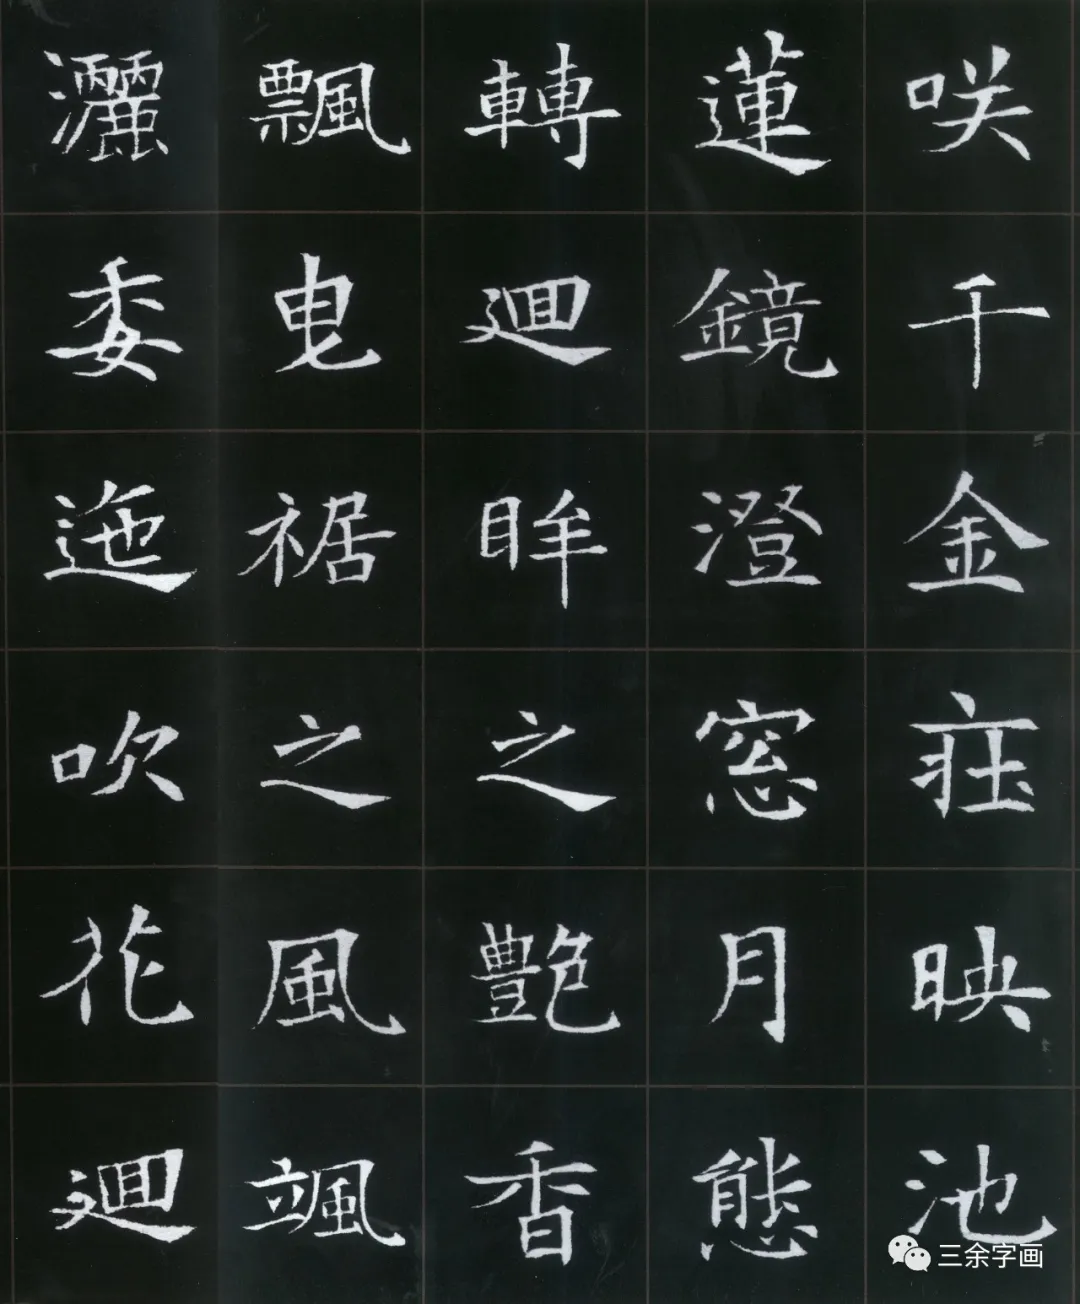 咲千金莊映池
蓮鏡澄窓月態
轉廻眸之艷香
飄曳裾之風颯
灑委迤吹花廻
三余字画